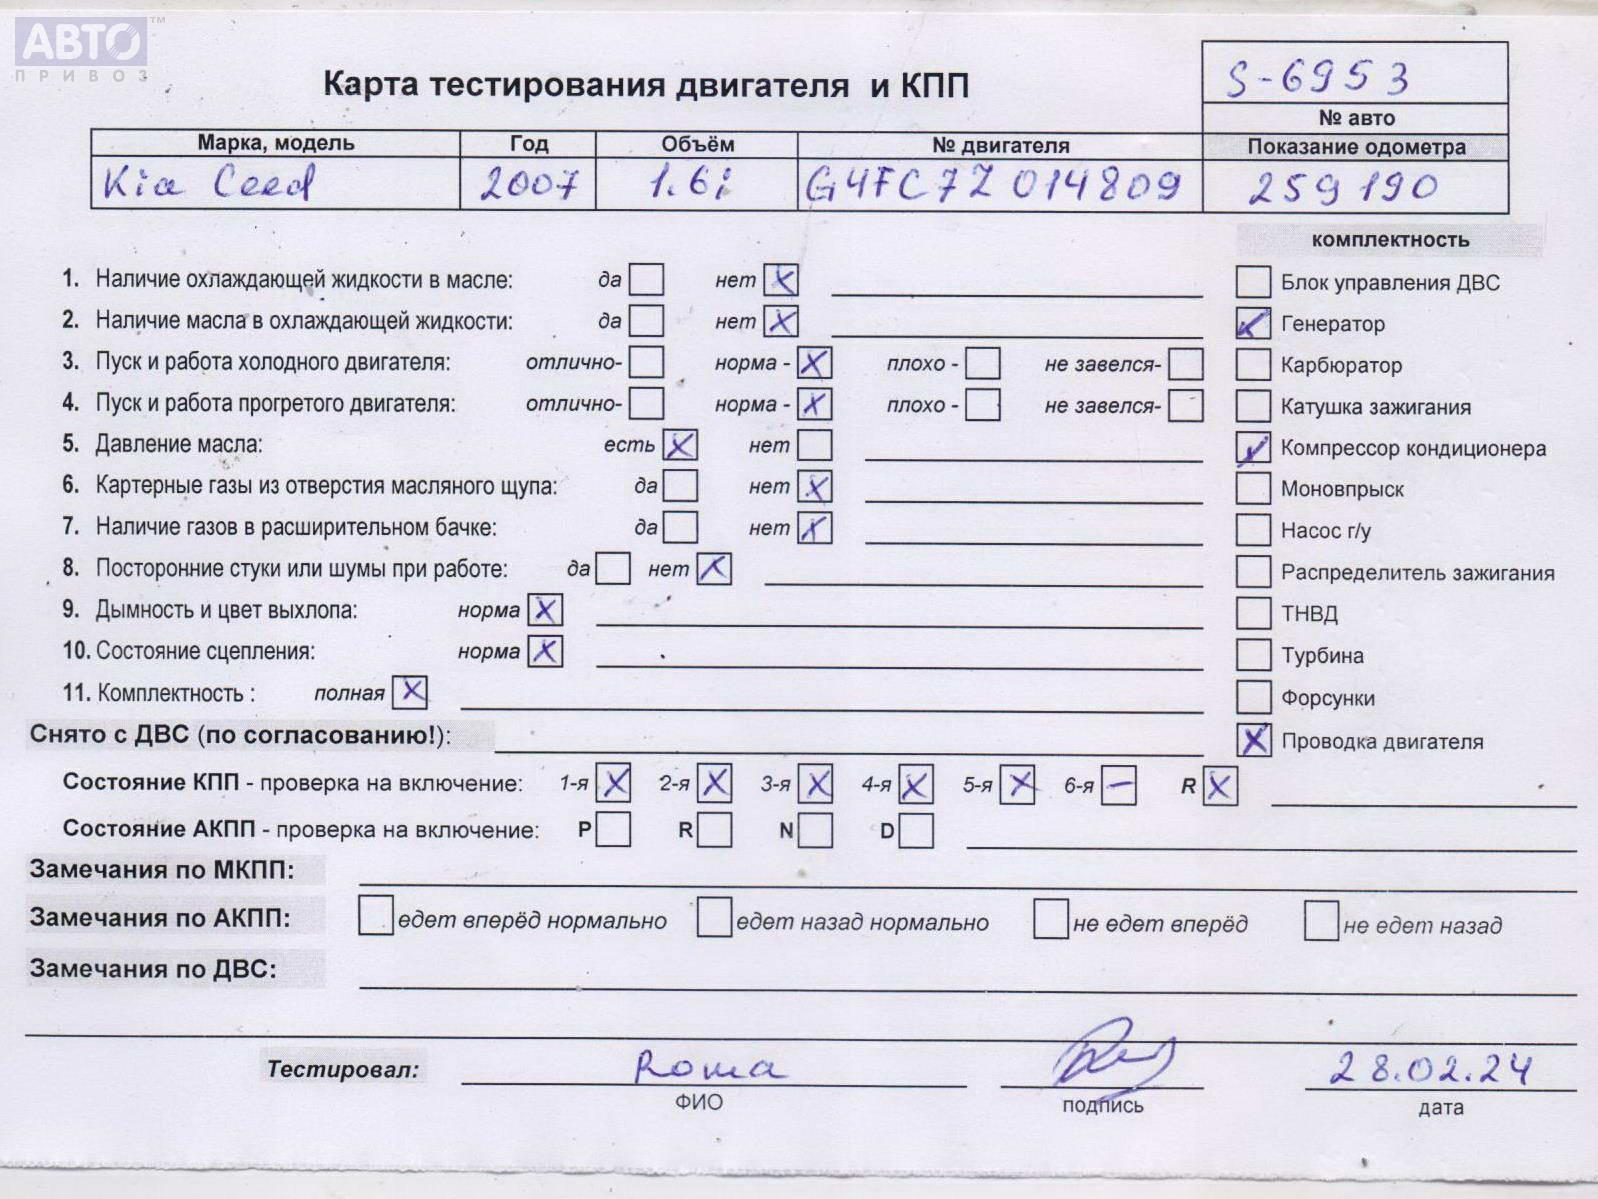 АВТО™
ПРИВОЗ
Карта тестирования двигателя и КПП
S-6953
№ авто
Марка, модель Год Объём № двигателя Показание одометра
Kia Ceed 2007 1.6i G4FC7Z014809 259190
комплектность
1. Наличие охлаждающей жидкости в масле: да нет X
Блок управления ДВС
2. Наличие масла в охлаждающей жидкости: да нет X
Генератор
3. Пуск и работа холодного двигателя: отлично- норма - X плохо - не завелся-
Карбюратор
4. Пуск и работа прогретого двигателя: отлично- норма - X плохо - не завелся-
Катушка зажигания
5. Давление масла: есть X нет
Компрессор кондиционера
6. Картерные газы из отверстия масляного щупа: да нет X
Моновпрыск
7. Наличие газов в расширительном бачке: да нет X
Насос г/у
8. Посторонние стуки или шумы при работе: да нет X
Распределитель зажигания
9. Дымность и цвет выхлопа: норма X
ТНВД
10. Состояние сцепления: норма X
Турбина
11. Комплектность : полная X
Форсунки
Снято с ДВС (по согласованию!):
X Проводка двигателя
Состояние КПП - проверка на включение: 1-я X 2-я X 3-я X 4-я X 5-я X 6-я – R X
Состояние АКПП - проверка на включение: P R N D
Замечания по МКПП:
Замечания по АКПП: едет вперёд нормально едет назад нормально не едет вперёд не едет назад
Замечания по ДВС:
Тестировал: Roma 28.02.24
ФИО подпись дата